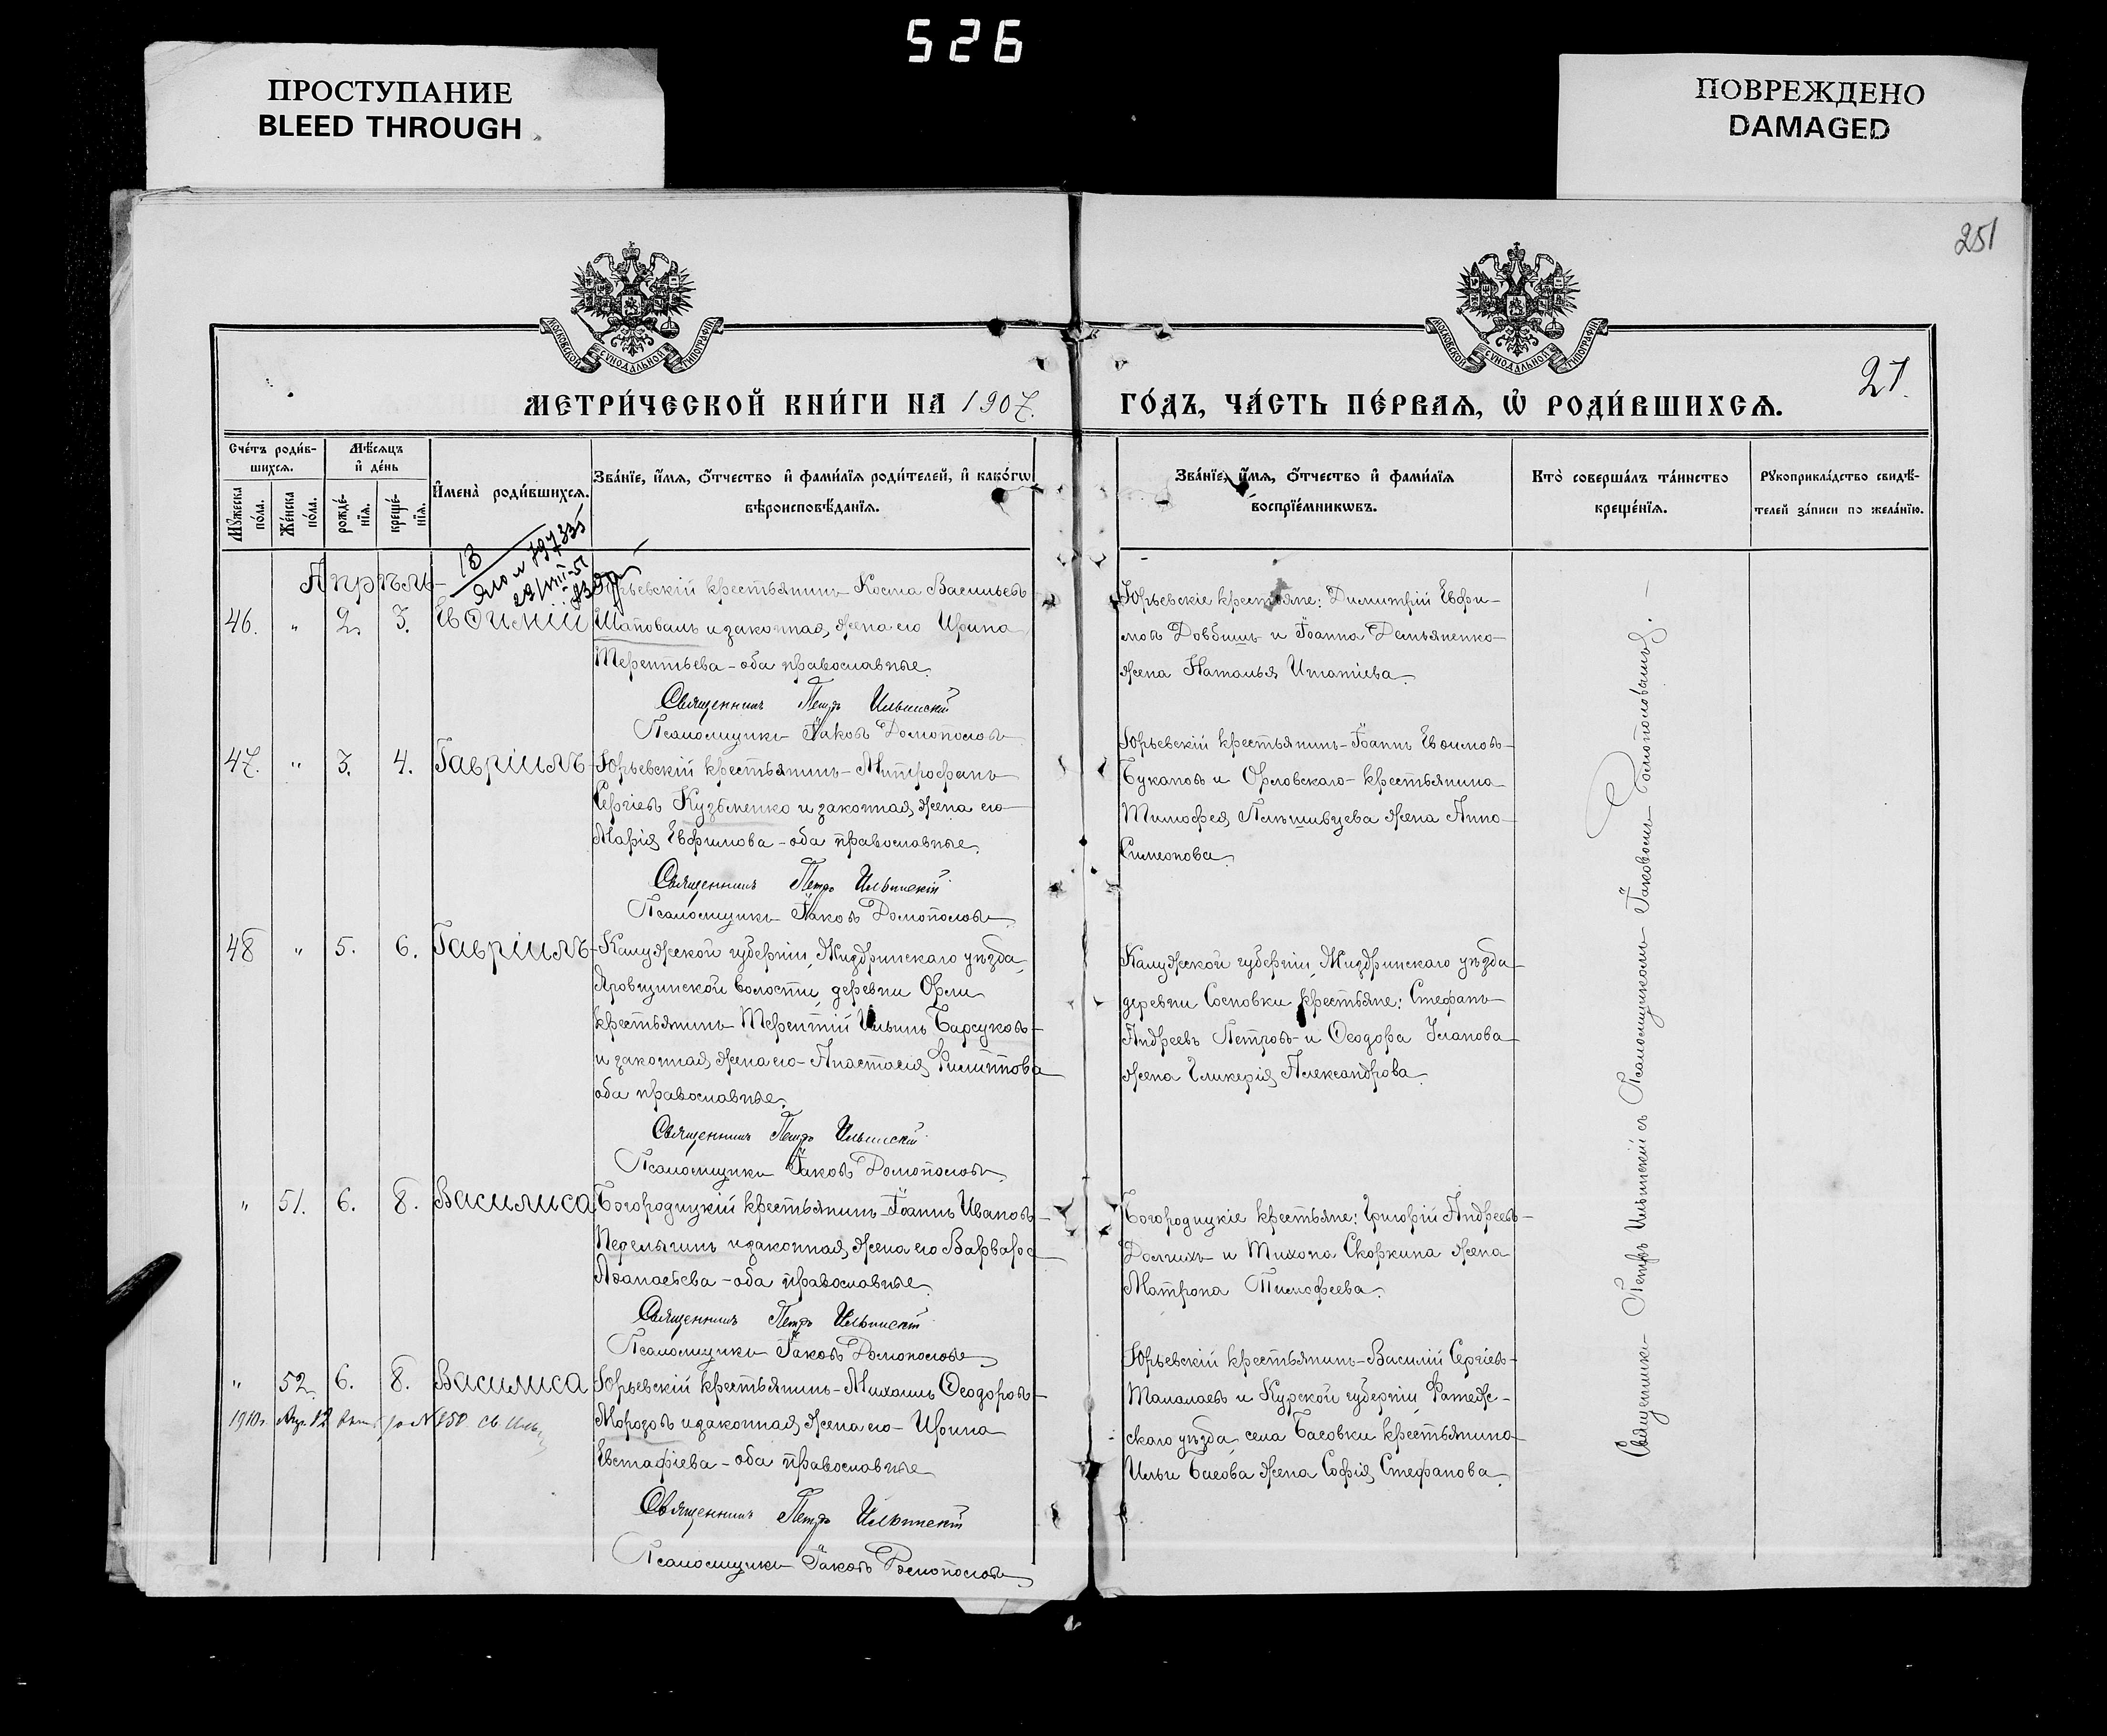 526
ПРОСТУПАНИЕ
BLEED THROUGH
ПОВРЕЖДЕНО
DAMAGED
251
МОСКОВСКОЙ СѴНОДАЛЬНОЙ ТИПОГРАФІИ
МОСКОВСКОЙ СѴНОДАЛЬНОЙ ТИПОГРАФІИ
27.
МЕТРИ́ЧЕСКОЙ КНИ́ГИ НА 1907. ГО́ДЪ, ЧА́СТЬ ПЕ́РВАѦ, Ѡ҆ РОДИ́ВШИХСѦ.
Сче́тъ роди́в-
шихсѧ.
Мѣ́сѧцъ
и҆ де́нь
Мꙋ́жеска по́ла.
Же́нска по́ла.
рожде́-
нїѧ.
креще́-
нїѧ.
И҆мена̀ роди́вшихсѧ.
Зва́нїе, и҆́мѧ, ѻ҆́тчество и҆ фами́лїѧ роди́телей, и҆ како́гѡ
вѣроисповѣ́данїѧ.
Зва́нїе, и҆́мѧ, ѻ҆́тчество и҆ фами́лїѧ
воспрїе́мникѡвъ.
Кто̀ соверша́лъ та́инство
креще́нїѧ.
Рꙋкоприкла́дство свидѣ́-
телей за́писи по жела́нїю.
13
Апрѣль
Юрьевскій крестьянинъ Косма Васильевъ
46. " 2. 3. Евѳимій Шаповалъ и законная жена его Ирина
Терентьева - оба православные.
Священникъ Петръ Ильинскій
Псаломщикъ Іаковъ
Юрьевскіе крестьяне: Димитрій Евфи-
мовъ Довбишъ и Іоанна Демьяненко
жена Наталья Игнатіева.
47. " 3. 4. Гавріилъ Юрьевскій крестьянинъ Митрофанъ
Сергіевъ Кузьменко и законная жена его
Марія Евфимова - оба православные.
Священникъ Петръ Ильинскій
Псаломщикъ Іаковъ
Юрьевскій крестьянинъ Іоаннъ Евѳимовъ
Букановъ и Орловскаго крестьянина
Тимофея жена Анна
Симеонова.
48 " 5. 6. Гавріилъ Калужской губерніи, Жиздринскаго уѣзда,
Яровщинской волости, деревни Орли
крестьянинъ Терентій Ильинъ Барсуковъ
и законная жена его Анастасія Филиппова
оба православные.
Священникъ Петръ Ильинскій
Псаломщикъ Іаковъ
Калужской губерніи, Жиздринскаго уѣзда
деревни Сосновки крестьяне: Стефанъ
Андреевъ Петровъ и Ѳеодора Уланова
жена Гликерія Александрова.
" 51. 6. 8. Василиса Богородицкій крестьянинъ Іоаннъ Ивановъ
Неделягинъ и законная жена его Варвара
Аѳанасьева - оба православные.
Священникъ Петръ Ильинскій
Псаломщикъ Іаковъ
Богородицкіе крестьяне: Григорій Андреевъ
Долгихъ и Тихона Скоркина жена
Матрона Тимофеева.
" 52. 6. 8. Василиса Юрьевскій крестьянинъ Михаилъ Ѳеодоровъ
Морозовъ и законная жена его Ирина
Евстафіева - оба православные
1910г. Апр. 12 № 250 св. Иль
Священникъ Петръ Ильинскій
Псаломщикъ Іаковъ
Юрьевскій крестьянинъ Василій Сергіевъ
Малалаевъ и Курской губерніи, Фатеж-
скаго уѣзда, села Басовки крестьянина
Ильи Басова жена Софія Стефанова.
Священникъ Петръ Ильинскій съ Псаломщикомъ Іаковомъ